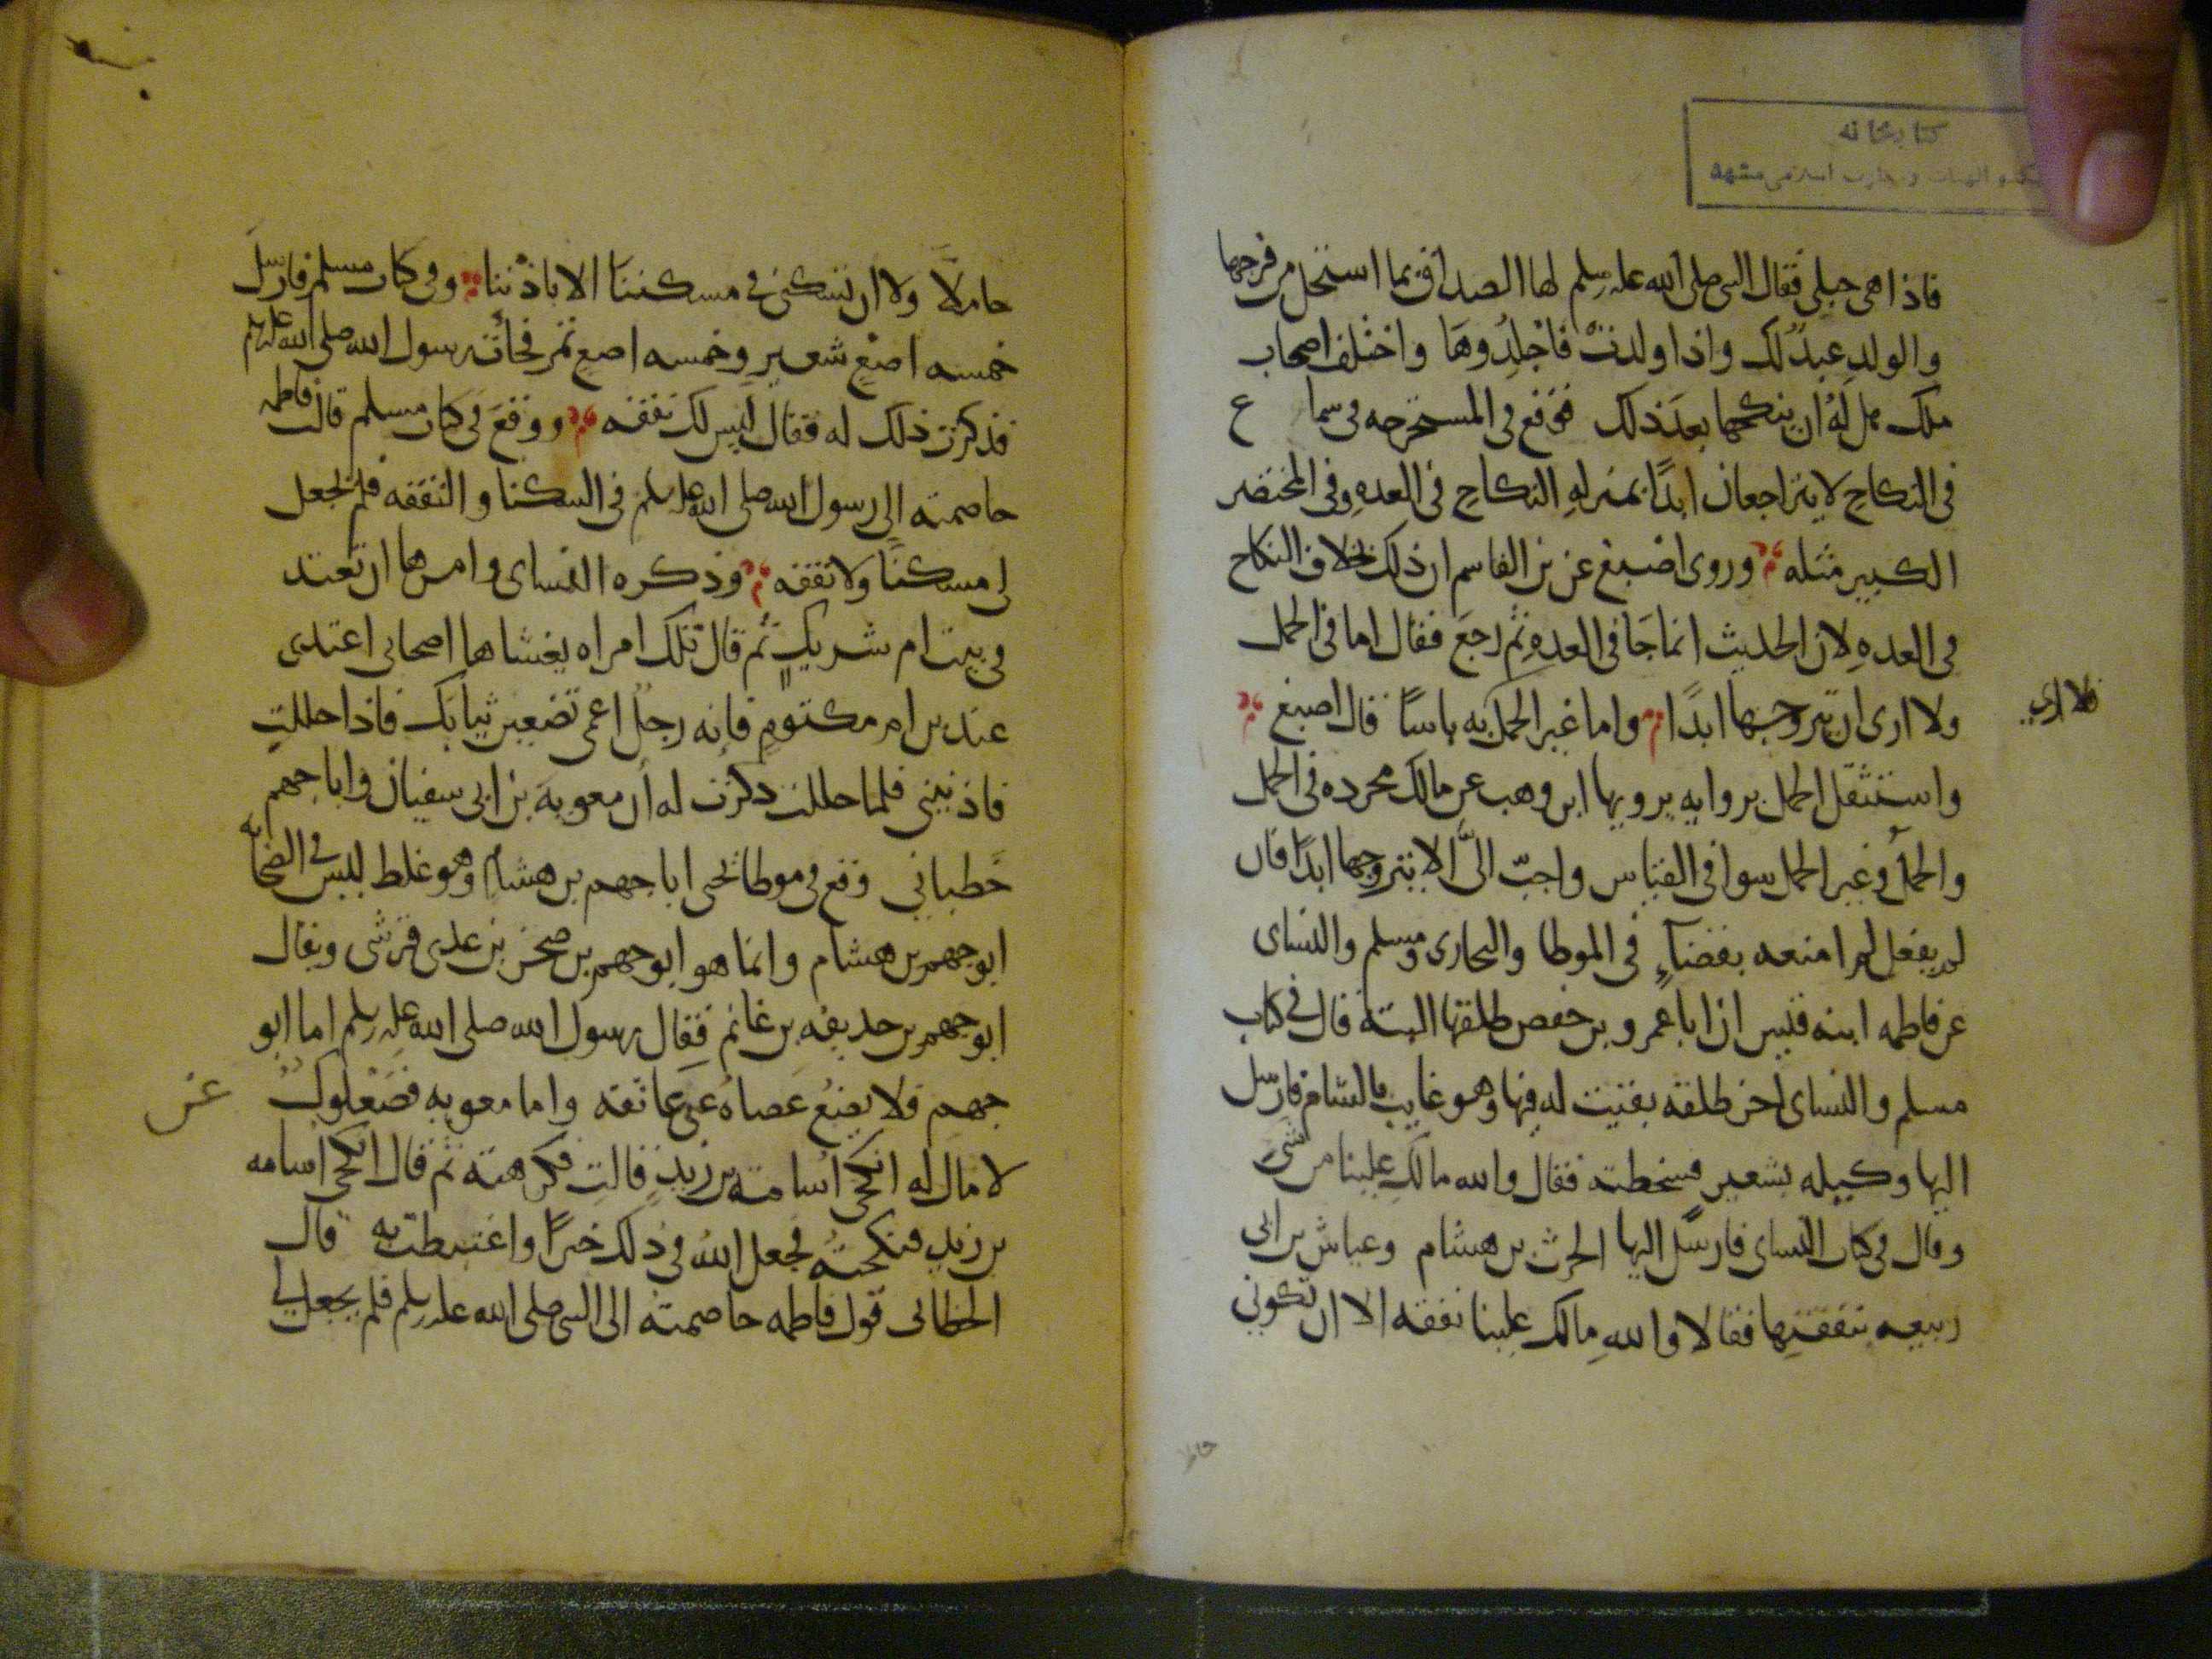 كتابخانه
الهيات و معارف اسلامى مشهد
فاذا هى حبلى فقال النبى صلى الله عليه وسلم لها الصداق بما استحل من فرجها
والولد عبد لك واذا ولدت فاجلدوها واختلف اصحاب
ملك هل له ان ينكحها بعد ذلك فوقع فى المستخرجه فى سماع
فى النكاح لا يتراجعان ابدا بمنزله النكاح فى العده وفى المختصر
الكبير مثله وروى اصبغ عن بن القاسم ان ذلك بخلاف النكاح
فى العده لان الحديث انما جا فى العده ثم رجع فقال اما فى الحمل
ولا ارى ان يتزوجها ابدا واما غير الحمل به باسا قال اصبغ
فلا ارى
واستثقل الحمل بروايه يرويها ابن وهب عن مالك مجرده فى الحمل
والحمل وغير الحمل سوا فى القياس واحب الى الا يتزوجها ابدا فان
لم يفعل لم امنعه بقضاء فى الموطا والبخارى ومسلم والنساى
عن فاطمه ابنه قيس ان ابا عمرو بن حفص طلقها البته قال فى كتاب
مسلم والنساى اخر طلقه بقيت له فيها وهو غايب بالشام فارسل
اليها وكيله بشعير فسخطته فقال والله مالك علينا من شى
وقال فى كتاب النساى فارسل اليها الحرث بن هشام وعياش بن ابى
ربيعه بنفقتها فقالا والله مالك علينا نفقه الا ان تكونى
حاملا
حاملا ولا ان تسكنى فى مسكننا الا باذننا وفى كتاب مسلم فارسل
خمسه اصع شعير وخمسه اصع تمر فجات رسول الله صلى الله عليه وسلم
فذكرت ذلك له فقال ليس لك نفقه ووقع فى كتاب مسلم قالت فاطمه
خاصمته الى رسول الله صلى الله عليه وسلم فى السكنا والنفقه فلم يجعل
لى مسكنا ولا نفقه وذكره النساى وامرها ان تعتد
فى بيت ام شريك ثم قال تلك امراه يغشاها اصحابى اعتدى
عند بن ام مكتوم فانه رجل اعمى تضعين ثيابك فاذا حللت
فاذنينى فلما حللت ذكرت له ان معويه بن ابى سفيان وابا جهم
خطبانى وقع فى موطا يحيى ابا جهم بن هشام وهو غلط ليس فى الصحابه
ابو جهم بن هشام وانما هو ابو جهم بن صخر بن عدى قرشى ويقال
ابو جهم بن حذيفه بن غانم فقال رسول الله صلى الله عليه وسلم اما ابو
جهم فلا يضع عصاه على عاتقه واما معويه فصعلوك
عن
لا مال له انكحى اسامة بن زيد قالت فكرهته ثم قال انكحى اسامه
بن زيد فنكحته فجعل الله فى ذلك خيرا واغتبطت به قال
الخطابى قول فاطمه خاصمته الى النبى صلى الله عليه وسلم فلم يجعل لى